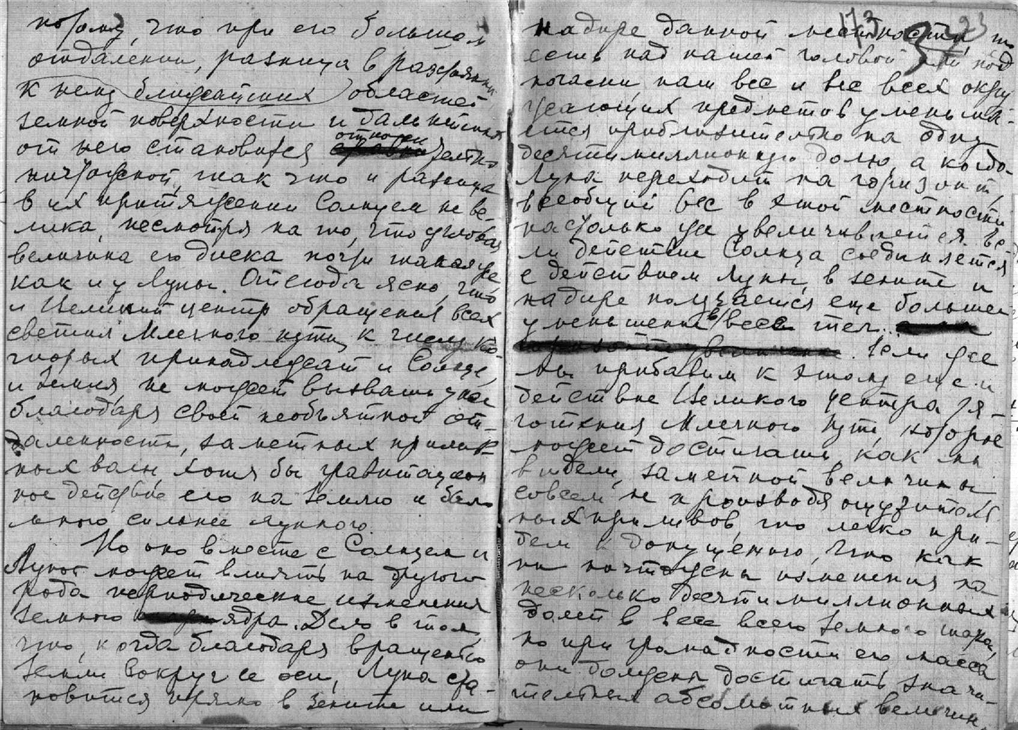 потому, что при его большом
отдалении, разница в расстоянии
к нему ближайших областей
земной поверхности и дальнейших
от него становится относи
тельно
ничтожной, так что и разница
в их притяжении Солнцем не ве-
лика, несмотря на то, что угловая
величина его диска почти такая же
как и у Луны. Отсюда ясно, что
и Великий центр обращения всех
светил Млечного пути, к числу ко-
торых принадлежат и Солнце,
и Земля, не может вызвать у нас
благодаря своей необъятной от-
даленности, заметных прилив
ных волн, хотя бы гравитацион
ное действие его на Землю и было
много сильнее лунного.
Но оно вместе с Солнцем и
Луной может влиять на другого
рода периодические изменения
земного ядра. Дело в том,
что, когда благодаря вращению
Земли вокруг ее оси, Луна ста-
новится прямо в зените или
173 23
надире данной местности, то
есть над нашей головой или под
ногами, наш вес и вес всех окру
жающих предметов уменьша-
ется приблизительно на одну
десятимиллионную долю, а когда
Луна переходит на горизонт,
всеобщий вес в этой местности
настолько же увеличивается. Ес
ли действие Солнца соединяется
с действием Луны, в зените и
надире получается еще большее
уменьшение веса тел.
Если же
мы прибавим к этому еще и
действие Великого центра тя-
готения Млечного пути, которое
может достигать, как мы
видели, заметной величины,
совсем не производя ощутитель
ных приливов, то легко при-
дем к допущению, что как
ни ничтожны изменения на
несколько десятимиллионных
долей в весе всего земного шара,
но при громадности его массы
они должны достигать значи-
тельных абсолютных величин,